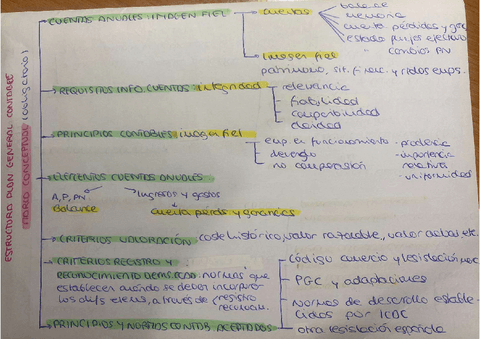 ESTRUCTURA PLAN GENERAL CONTABLE
MARCO CONCEPTUAL (obligatorio)
CUENTAS ANUALES IMAGEN FIEL
cuentas
balance
memoria
cuenta pérdidas y gan
estado flujos efectivo
cambios PN
Imagen fiel
patrimonio, sit. financ. y rtdos emps.
REQUISITOS INFO. CUENTAS integridad
relevancia
fiabilidad
comparabilidad
claridad
PRINCIPIOS CONTABLES imagen fiel
emp. en funcionamiento
devengo
no compensación
prudencia
importancia relativa
uniformidad
ELEMENTOS CUENTAS ANUALES
A, P, PN
Balance
Ingresos y gastos
cuenta pérds. y ganancias
CRITERIOS VALORACIÓN coste histórico, valor razonable, valor actual etc.
CRITERIOS REGISTRO Y
RECONOCIMIENTO normas que
establecen cuándo se deben incorpor
los elems, a través de registro
Código comercio y legislación merc
PGC y adaptaciones
Normas de desarrollo estable-
cidas por ICAC
otra legislación española
PRINCIPIOS Y NORMAS CONTAB. ACEPTADOS